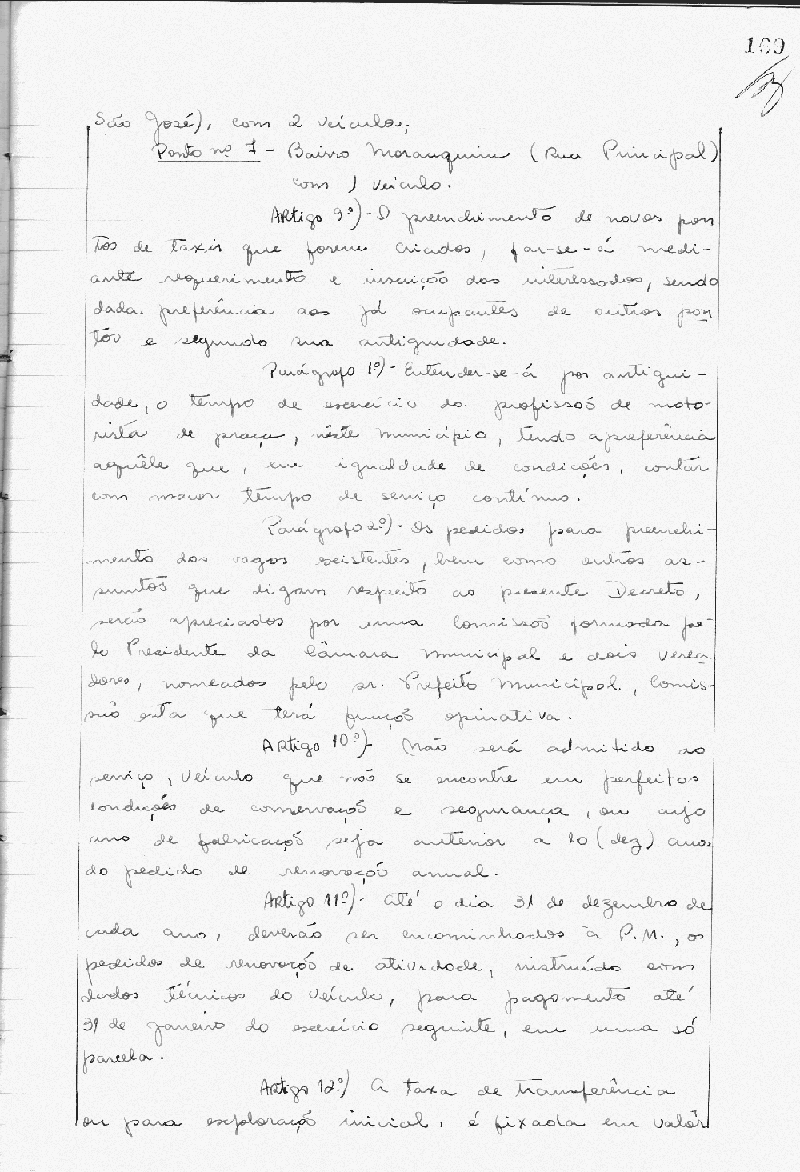 109
São José), com 2 veículos;
Ponto nº 7 - Bairro Moranguinu (Rua Principal)
com 1 veículo.
Artigo 9º)- O preenchimento de novos pon
tos de taxis que forem criados, far-se-á medi-
ante requerimento e inscrição dos interessados, sendo
dada preferência aos já ocupantes de outros pon
tos e segundo sua antiguidade.
Parágrafo 1º)- Entender-se-á por antigui-
dade, o tempo de exercício da profissão de moto-
rista de praça, nêste município, tendo a preferência
aquêle que, em igualdade de condições, contar
com maior tempo de serviço contínuo.
Parágrafo 2º)- Os pedidos para preenchi-
mento das vagas existentes, bem como outros as-
suntos que digam respeito ao presente Decreto,
serão apreciados por uma Comissão formada pe-
lo Presidente da Câmara Municipal e dois Verea-
dores, nomeados pelo sr. Prefeito Municipal, Comis-
são esta que terá função opinativa.
Artigo 10º)- Não será admitido ao
serviço, veículo que não se encontre em perfeitas
condições de conservação e segurança, ou cujo
ano de fabricação seja anterior a 10 (dez) anos
do pedido de renovação anual.
Artigo 11º)- Até o dia 31 de dezembro de
cada ano, deverão ser encaminhados à P.M., os
pedidos de renovação de atividade, instruído com
dados técnicos do veículo, para pagamento até
31 de janeiro do exercício seguinte, em uma só
parcela.
Artigo 12º) A taxa de transferência
ou para exploração inicial, é fixada em valôr